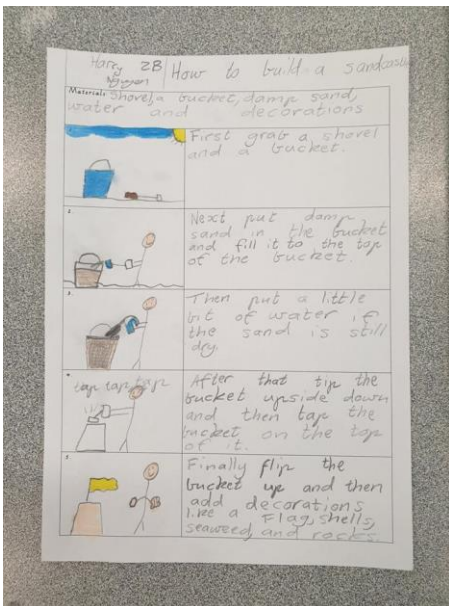 Harry 2B
Nguyen
How to build a sandcastle
Materials: Shovel, a bucket, damp sand,
water and decorations
First grab a shovel
and a bucket.
2.
Next put damp
sand in the bucket
and fill it to the top
of the bucket.
3.
Then put a little
bit of water if
the sand is still
dry.
4.
tap tap tap
After that tip the
bucket upside down
and then tap the
bucket on the top
of it.
5.
Finally flip the
bucket up and then
add decorations
like a Flag, shells,
seaweed, and rocks.